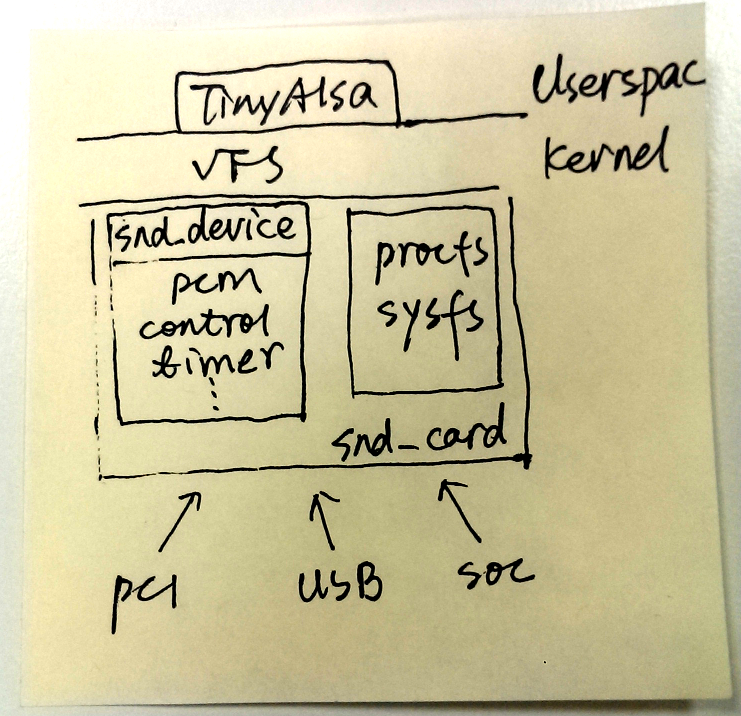 TinyAlsa
Userspac
VFS
kernel
snd_device
pcm
control
timer
procfs
sysfs
snd_card
pci
USB
soc